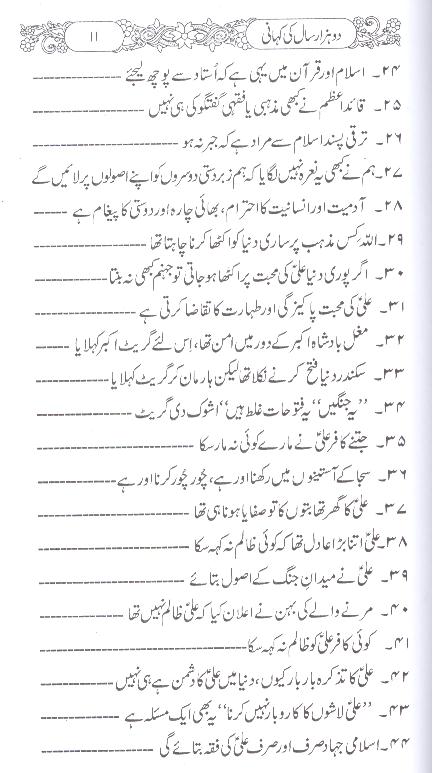 دو ہزار سال کی کہانی
۱۱
۲۴۔ اسلام اور قرآن میں یہی ہے کہ اُستاد سے پوچھ لیجئے ----------
۲۵۔ قائداعظم نے کبھی مذہبی یا فقہی گفتگو کی ہی نہیں ----------
۲۶۔ ترقی پسند اسلام سے مراد ہے کہ جبر نہ ہو ----------
۲۷۔ ہم نے کبھی یہ نعرہ نہیں لگایا کہ ہم زبردستی دوسروں کو اپنے اصولوں پر لائیں گے
۲۸۔ آدمیت اور انسانیت کا احترام، بھائی چارہ اور دوستی کا پیغام ہے ------
۲۹۔ اللہ کس مذہب پر ساری دنیا کو اکٹھا کرنا چاہتا تھا ----------
۳۰۔ اگر پوری دنیا علیؑ کی محبت پر اکٹھا ہو جاتی تو جہنم کبھی نہ بنتا ----------
۳۱۔ علیؑ کی محبت پاکیزگی اور طہارت کا تقاضا کرتی ہے ----------
۳۲۔ مغل بادشاہ اکبر کے دور میں امن تھا، اِس لئے گریٹ اکبر کہلایا ------
۳۳۔ سکندر دنیا فتح کرنے نکلا تھا لیکن ہار مان کر گریٹ کہلایا ----------
۳۴۔ ”یہ جنگیں“ یہ فتوحات غلط ہیں“ اشوک دی گریٹ ----------
۳۵۔ جتنے کافر علیؑ نے مارے کوئی نہ مار سکا ----------
۳۶۔ سجا کے آستینوں میں رکھنا اور ہے، چُور چُور کرنا اور ہے ----------
۳۷۔ علیؑ کا گھر تھا بتوں کا تو صفایا ہونا ہی تھا ----------
۳۸۔ علیؑ اتنا بڑا عادل تھا کہ کوئی ظالم نہ کہہ سکا ----------
۳۹۔ علیؑ نے میدانِ جنگ کے اصول بتائے ----------
۴۰۔ مرنے والے کی بہن نے اعلان کیا کہ علیؑ ظالم نہیں تھا ----------
۴۱۔ کوئی کافر علیؑ کو ظالم نہ کہہ سکا ----------
۴۲۔ علیؑ کا تذکرہ بار بار کیوں، دنیا میں علیؑ کا دشمن ہے ہی نہیں ----------
۴۳۔ ”علیؑ لاشوں کا کاروبار نہیں کرتا“ یہ بھی ایک مسئلہ ہے ----------
۴۴۔ اسلامی جہاد صرف اور صرف علیؑ کی فقہ بتائے گی ----------